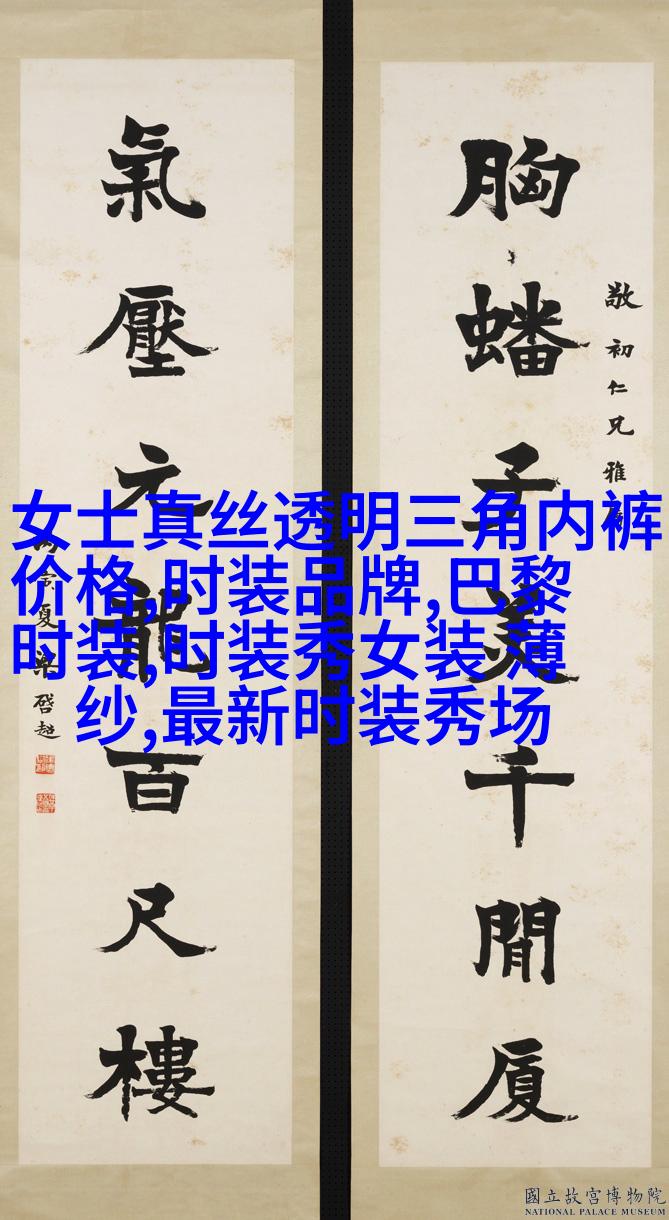 胸蟠子美千間厦
敬初仁兄雅
氣壓元龍百尺樓
寅夏梁啓超
女士真丝透明三角内裤
价格,时装品牌,巴黎
时装,时装秀女装 薄
纱,最新时装秀场
國立故宮博物院
NATIONAL PALACE MUSEUM